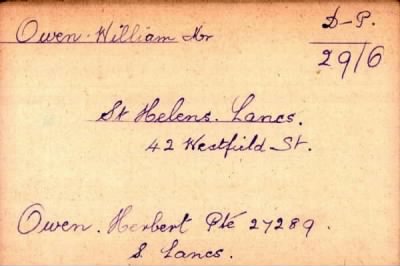 Owen. William Mr
D-P.
29/6
St Helens. Lancs.
42 Westfield St.
Owen. Herbert Pte 27289.
S. Lancs.